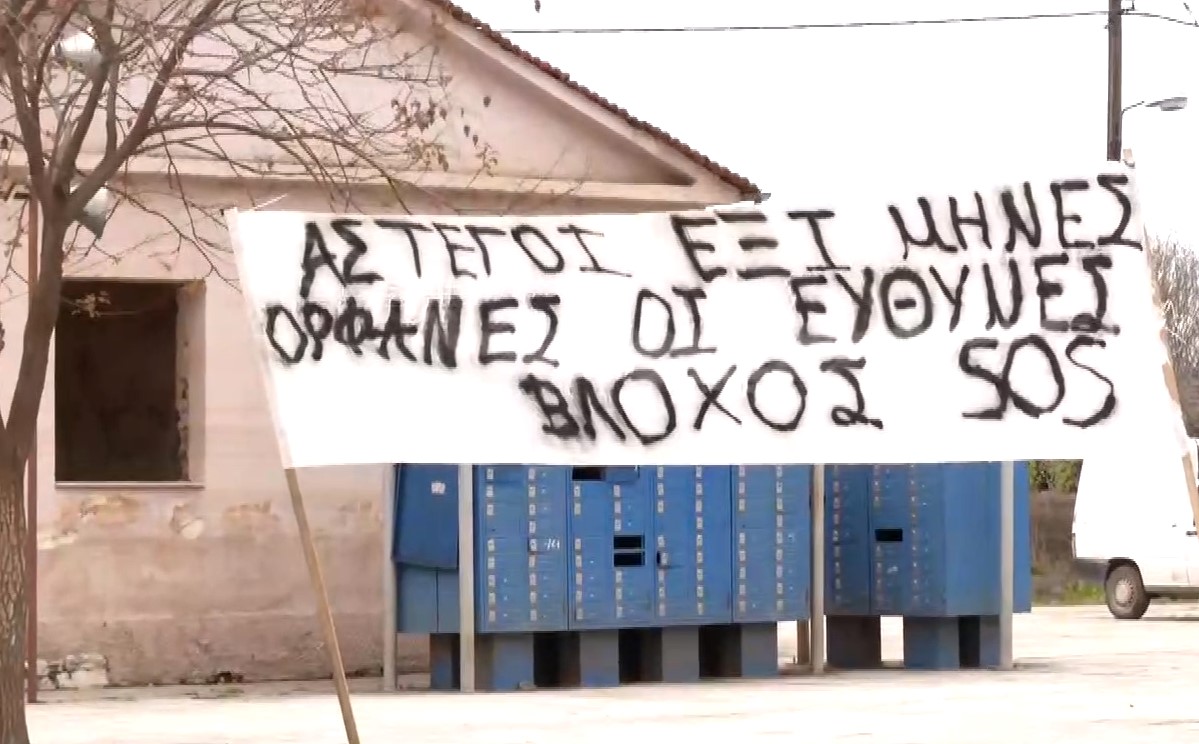 ΑΣΤΕΓΟΙ ΕΞΙ ΜΗΝΕΣ
ΟΡΦΑΝΕΣ ΟΙ ΕΥΘΥΝΕΣ
ΒΛΟΧΟΣ SOS